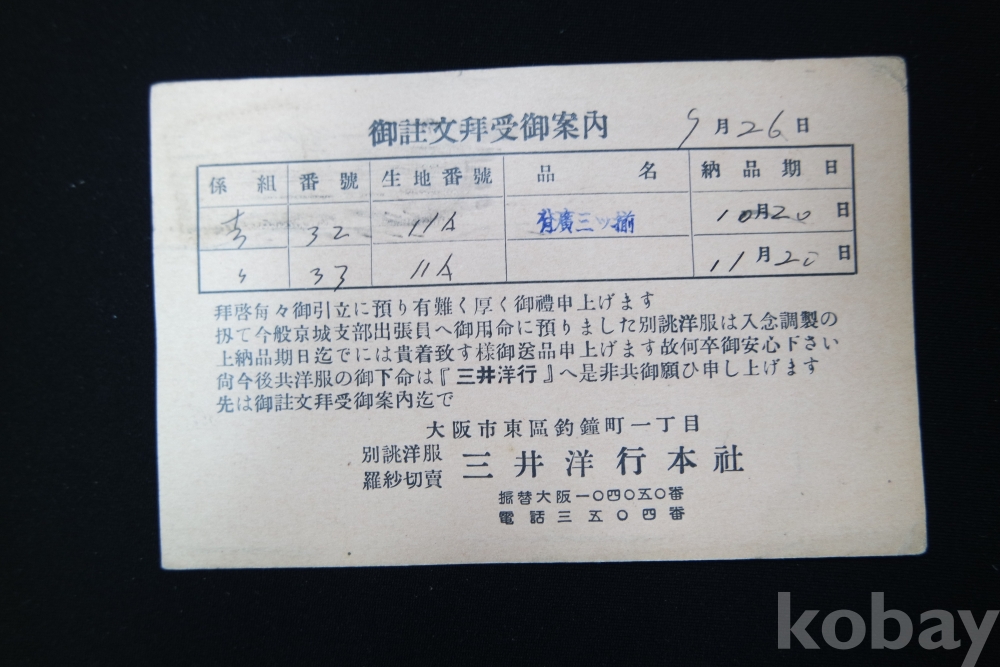 御註文拜受御案內 9月26日
係組 番號 生地番號 品名 納品期日
32 11A 背廣三ツ揃 10月20日
〃 33 11A 11月20日
拜啓每々御引立に預り有難く厚く御禮申上げます
扨て今般京城支部出張員へ御用命に預りました別誂洋服は入念調製の
上納品期日迄でには貴着致す樣御送品申上げます故何卒御安心下さい
尙今後共洋服の御下命は『三井洋行』へ是非共御願ひ申し上げます
先は御註文拜受御案內迄で
大阪市東區釣鐘町一丁目
別誂洋服
羅紗切賣
三井洋行本社
振替大阪一〇四〇五〇番
電話三五〇四番
kobay